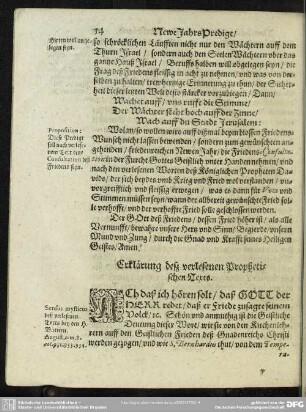 14
Newe Jahrs Predigt/
so schröcklichen Läufften nicht nur den Wächtern auff dem
Thurn Israel / sondern auch den Seelen Wächtern uber das
gantze Hauß Israel / Beruffs halben will obgelegen seyn / die
Frag deß Friedens fleissig in acht zu nehmen / und was von der-
selben zu halten / trewhertzige Erinnerung zu thun / der Sicher-
heit dieser letzten Welt desto stärcker vorzubiegen / Dann /
Wachet auff / uns rufft die Stimme /
Der Wächter sehr hoch auff der Zinne /
Wach auff du Statt Jerusalem:
Proposition:
Diese Predigt
soll auch
Consultation deß
Friedens seyn.
Wolan / so wollen wir auch dißmal beym blossen Friedens-
Wunsch nicht lassen bewenden / sondern zum gewünschten an-
gehenden / friedenreichen Newen Jahr / die Friedens-Consultation
in der Furcht Gottes Geistlich unter Handen nehmen / und
nach den verlesenen Worten deß Königlichen Propheten Da-
vids / der sich beydes umb Krieg und Fried wol verstanden / un-
vorgreifflich und fleissig erwegen / was
Stimmen müssen seyn / wann der allbereit gewünschte Fried sol-
le verhofft / und der verhoffte Fried solle geschlossen werden.
Der GOtt deß Friedens / dessen Fried höher ist / als alle
Vernunfft / bewahre unsere Hertz und Sinn / Begierde / unsern
Mund und Zung / durch die Gnad und Krafft seines Heiligen
Geistes / Amen.
Erklärung deß verlesenen Propheti-
schen Texts.
Sensus mysticus
deß verlesenen
Texts bey den H.
Vättern.
ACh daß ich hören solt / daß GOTT der
HERR redet / daß er Friede zusagte seinem
Volck / ec. Schön und anmuthig ist die Geistliche
Deutung dieser Wort / wie sie von den Kirchenleh-
rern auff den Geistlichen Frieden deß Gnadenreichs Christi
werden gezogen / und wie S. Bernhardus thut / von dem Tempe-
ra-